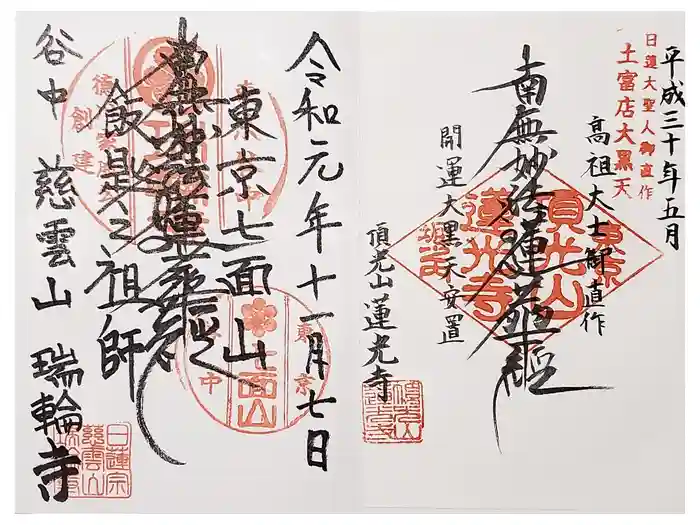 平成三十年五月
日蓮大聖人御直作
土富店大黒天
高祖大士御直作
南無妙法蓮華経
開運大黒天安置
頂光山 蓮光寺
頂光山
蓮光寺
令和元年十一月七日
東京七面山
南無妙法蓮華経
飯匙之祖師
谷中 慈雲山 瑞輪寺
東京
七面山
谷中
創建
日蓮宗
慈雲山
瑞輪寺